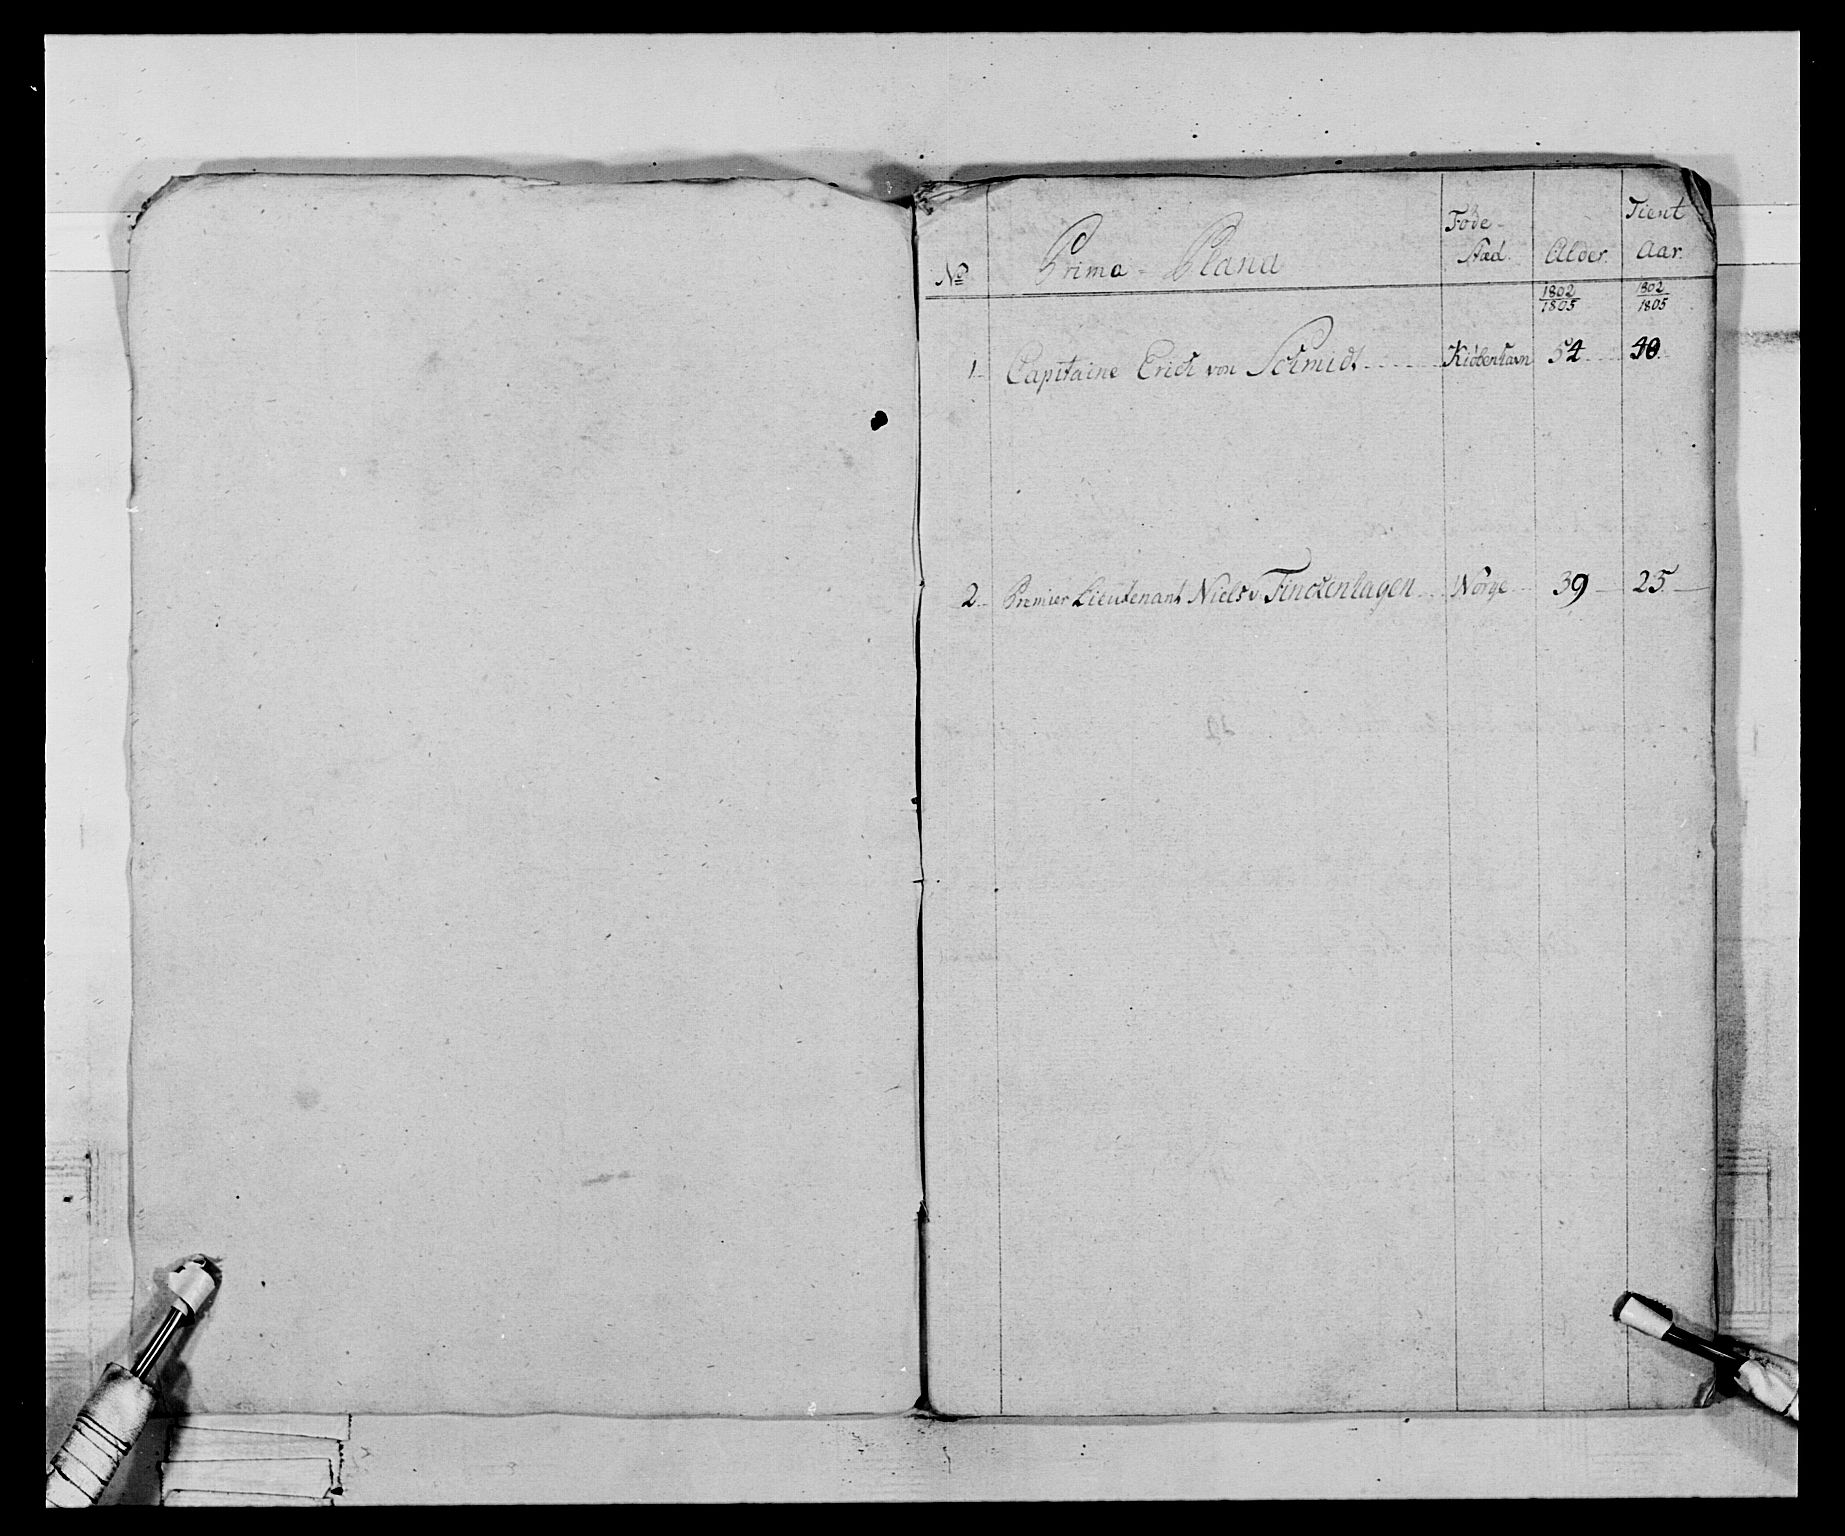 Tient
Føde-
Nº Prima - Plana Stæd. Alder. Aar.
1802 1802
1805 1805
1 Capitaine Erich von Schmidt Kiøbenhavn 54 40
2 Premier Lieutenant Niels v. Finckenhagen Norge 39 25